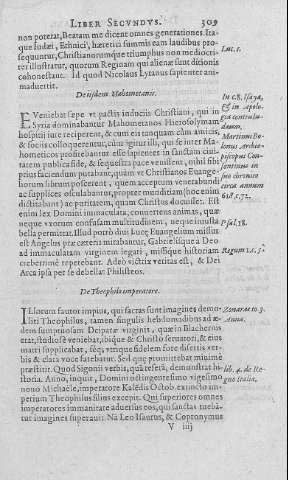 LIBER SECVNDVS. 309
non poterat, Beatam me dicent omnes generationes. Ita-
que Iudæi, Ethnici, hæretici summis eam laudibus pro-
sequuntur, Christianorumque triumphus non mediocri-
ter illustratur, quorum Reginam qui alienæ sunt ditionis
cohonestant. Id quod Nicolaus Lyranus sapienter ani-
maduertit.
Luc. 1.
De iisdem Mahometanis.
EVeniebat sæpe vt pactis induciis Christiani, qui in
Syria dominabantur Mahometanos Hierosolymam
hospitij iure reciperent, & cum eis tanquam cum amicis,
& sociis colloquerentur, cùm igitur illi, qui se inter Ma-
hometicos profitebantur esse sapientes in sanctam ciui-
tatem publica fide, & sequestra pace venissent, nihil sibi
prius faciendum putabant, quàm vt Christianos Euange-
horum libenter
& supplices osculabantur, propter munditiam (hoc enim
dictitabant) ac puritatem, quam Christus docuisset. Est
enim lex Domini immaculata, conuertens animas, quæ
neque vxorum confusam multitudinem, neque iniusta
bella permittat. Illud porrò diui Lucæ Euangelium missus
est Angelus præ cæteris mirabantur, Gabrielisque à Deo
ad immaculatam virginem legati, missique historiam
creberrimè repetebant. Adeò victrix veritas est, & Dei
Arca ipsa per se debellat Philisteos.
Psal. 18.
Regum 1. c. 5.
De Theophilo imperatore.
ILlorum fautor impius, qui sacras sunt imagines demo-
liti Theophilus, tamen singulis hebdomadibus ad æ-
dem sumptuosam Deiparæ virginis, quæ in Blachernis
erat, studiosè veniebat, ibique & Christo seruatori, & eius
matri supplicabat, seque vtrique fidelem fore disertis ver-
bis & clara voce fatebatur. Sed quæ promittebat minimè
præstitit. Quod Sigonii verbis, quà referà, demonstrat hi-
storia. Anno, inquit, Domini octingentesimo vigesimo
nono Michaële, imperatore Kaledis Octob. extincto im-
perium Theophilus filius excepit. Qui superiores omnes
imperatores immanitate aduersus eos, qui sanctas meba-
tur imagines superauit. Nã Leo Isaurus, & Copronymus
Zonaras to. 3.
Annal.
lib. 4. de Re-
gno Italiæ.
V iiij